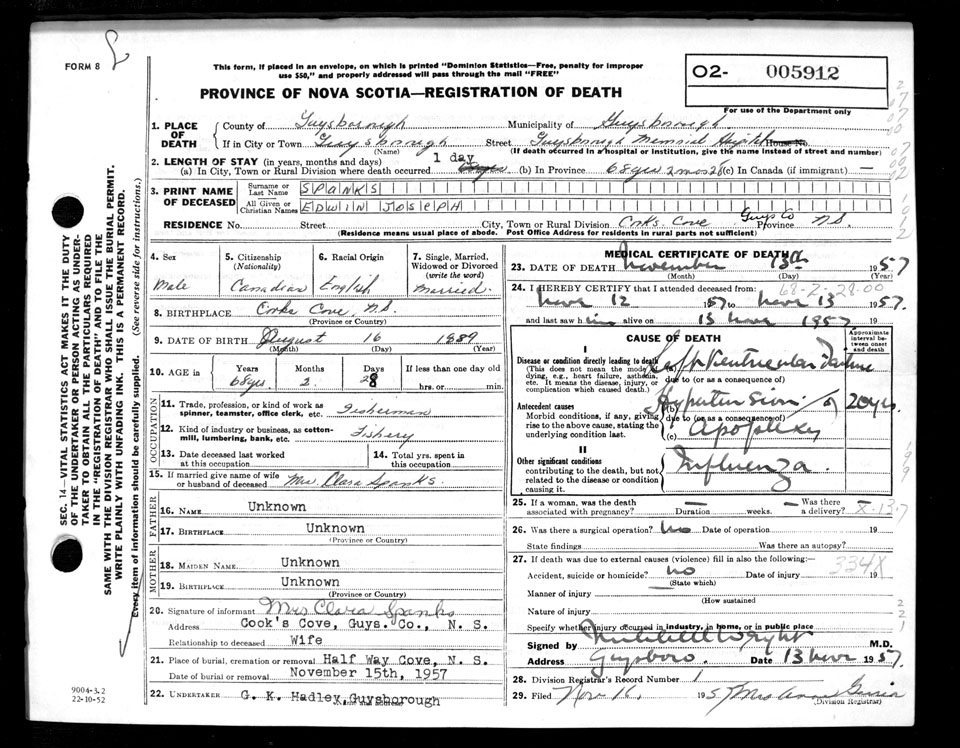 FORM 8
This form, if placed in an envelope, on which is printed "Dominion Statistics—Free, penalty for improper
use $50," and properly addressed will pass through the mail "FREE"
O2- 005912
PROVINCE OF NOVA SCOTIA—REGISTRATION OF DEATH
For use of the Department only
1. PLACE OF DEATH
County of Guysborough Municipality of Guysborough
If in City or Town Guysborough Street Guysboro Memorial House No.
(Name) (If death occurred in a hospital or institution, give the name instead of street and number)
2. LENGTH OF STAY (in years, months and days)
(a) In City, Town or Rural Division where death occurred 1 day (b) In Province 68 yrs 2 mos 28 (c) In Canada (if immigrant) —
3. PRINT NAME OF DECEASED
Surname or Last Name SPANKS
All Given or Christian Names EDWIN JOSEPH
RESIDENCE No. Street City, Town or Rural Division Cooks Cove Guys Co Province N.S.
(Residence means usual place of abode. Post Office Address for residents in rural parts not sufficient)
4. Sex
Male
5. Citizenship
(Nationality)
Canadian
6. Racial Origin
English
7. Single, Married, Widowed or Divorced
(write the word)
Married.
8. BIRTHPLACE Cooks Cove, N.S.
(Province or Country)
9. DATE OF BIRTH August 16 1889
(Month) (Day) (Year)
10. AGE in
Years Months Days If less than one day old
68 yrs. 2. 28 hrs. or min.
OCCUPATION
11. Trade, profession, or kind of work as
spinner, teamster, office clerk, etc. Fisherman
12. Kind of industry or business, as cotton-
mill, lumbering, bank, etc. Fishery
13. Date deceased last worked
at this occupation
14. Total yrs. spent in
this occupation
15. If married give name of wife
or husband of deceased Mrs. Clara Spanks.
FATHER
16. NAME Unknown
17. BIRTHPLACE Unknown
(Province or Country)
MOTHER
18. MAIDEN NAME Unknown
19. BIRTHPLACE Unknown
(Province or Country)
20. Signature of informant Mrs Clara Spanks
Address Cook's Cove, Guys. Co., N. S.
Relationship to deceased Wife
21. Place of burial, cremation or removal Half Way Cove, N. S.
Date of burial or removal November 15th, 1957
22. UNDERTAKER G. K. Hadley, Guysborough
MEDICAL CERTIFICATE OF DEATH
23. DATE OF DEATH November 13th 1957
(Month) (Day) (Year)
24. I HEREBY CERTIFY that I attended deceased from:
68-2-28-00
Nov 12 1957 to Nov 13 1957.
and last saw him alive on 13 Nov 1957
CAUSE OF DEATH
Approximate interval between onset and death
I
Disease or condition directly leading to death
(This does not mean the mode of dying, e.g., heart failure, asthenia, etc. It means the disease, injury, or complication which caused death.)
Left Ventricular Failure
due to (or as a consequence of)
Antecedent causes
Morbid conditions, if any, giving rise to the above cause, stating the underlying condition last.
(b) Hypertension 20 yrs.
due to (or as a consequence of)
(c) Apoplexy
II
Other significant conditions
contributing to the death, but not related to the disease or condition causing it.
Influenza.
25. If a woman, was the death
associated with pregnancy? — Duration weeks. — Was there a delivery? X-13-7
26. Was there a surgical operation? No Date of operation 19
State findings Was there an autopsy?
27. If death was due to external causes (violence) fill in also the following:—
334X
Accident, suicide or homicide? no Date of injury 19
(State which)
Manner of injury
(How sustained
Nature of injury
Specify whether injury occurred in industry, in home, or in public place
Signed by Wright M.D.
Address Guysboro. Date 13 Nov 1957.
28. Division Registrar's Record Number 1
29. Filed Nov 16, 1957 Mrs
(Division Registrar)
SEC. 14—VITAL STATISTICS ACT MAKES IT THE DUTY
OF THE UNDERTAKER OR PERSON ACTING AS UNDER-
TAKER TO OBTAIN ALL THE PARTICULARS REQUIRED
IN THE "REGISTRATION OF DEATH" AND TO FILE THE
SAME WITH THE DIVISION REGISTRAR WHO SHALL ISSUE THE BURIAL PERMIT.
WRITE PLAINLY WITH UNFADING INK. THIS IS A PERMANENT RECORD.
Every item of information should be carefully supplied. (See reverse side for instructions).
9004-3.2
22-10-52